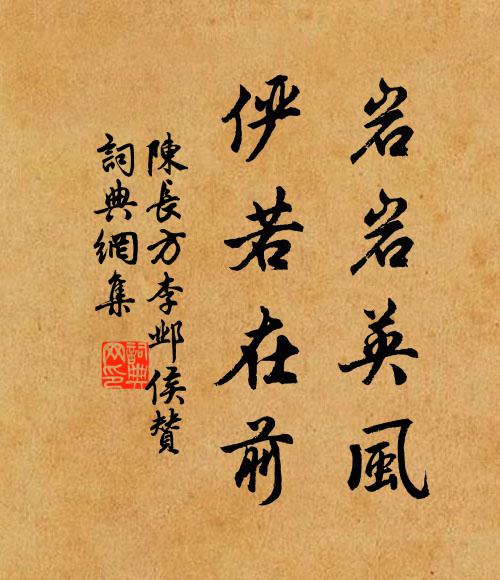 岩岩英風
俨若在前
陳長方李邺侯贊
詞典網集
詞典
网印